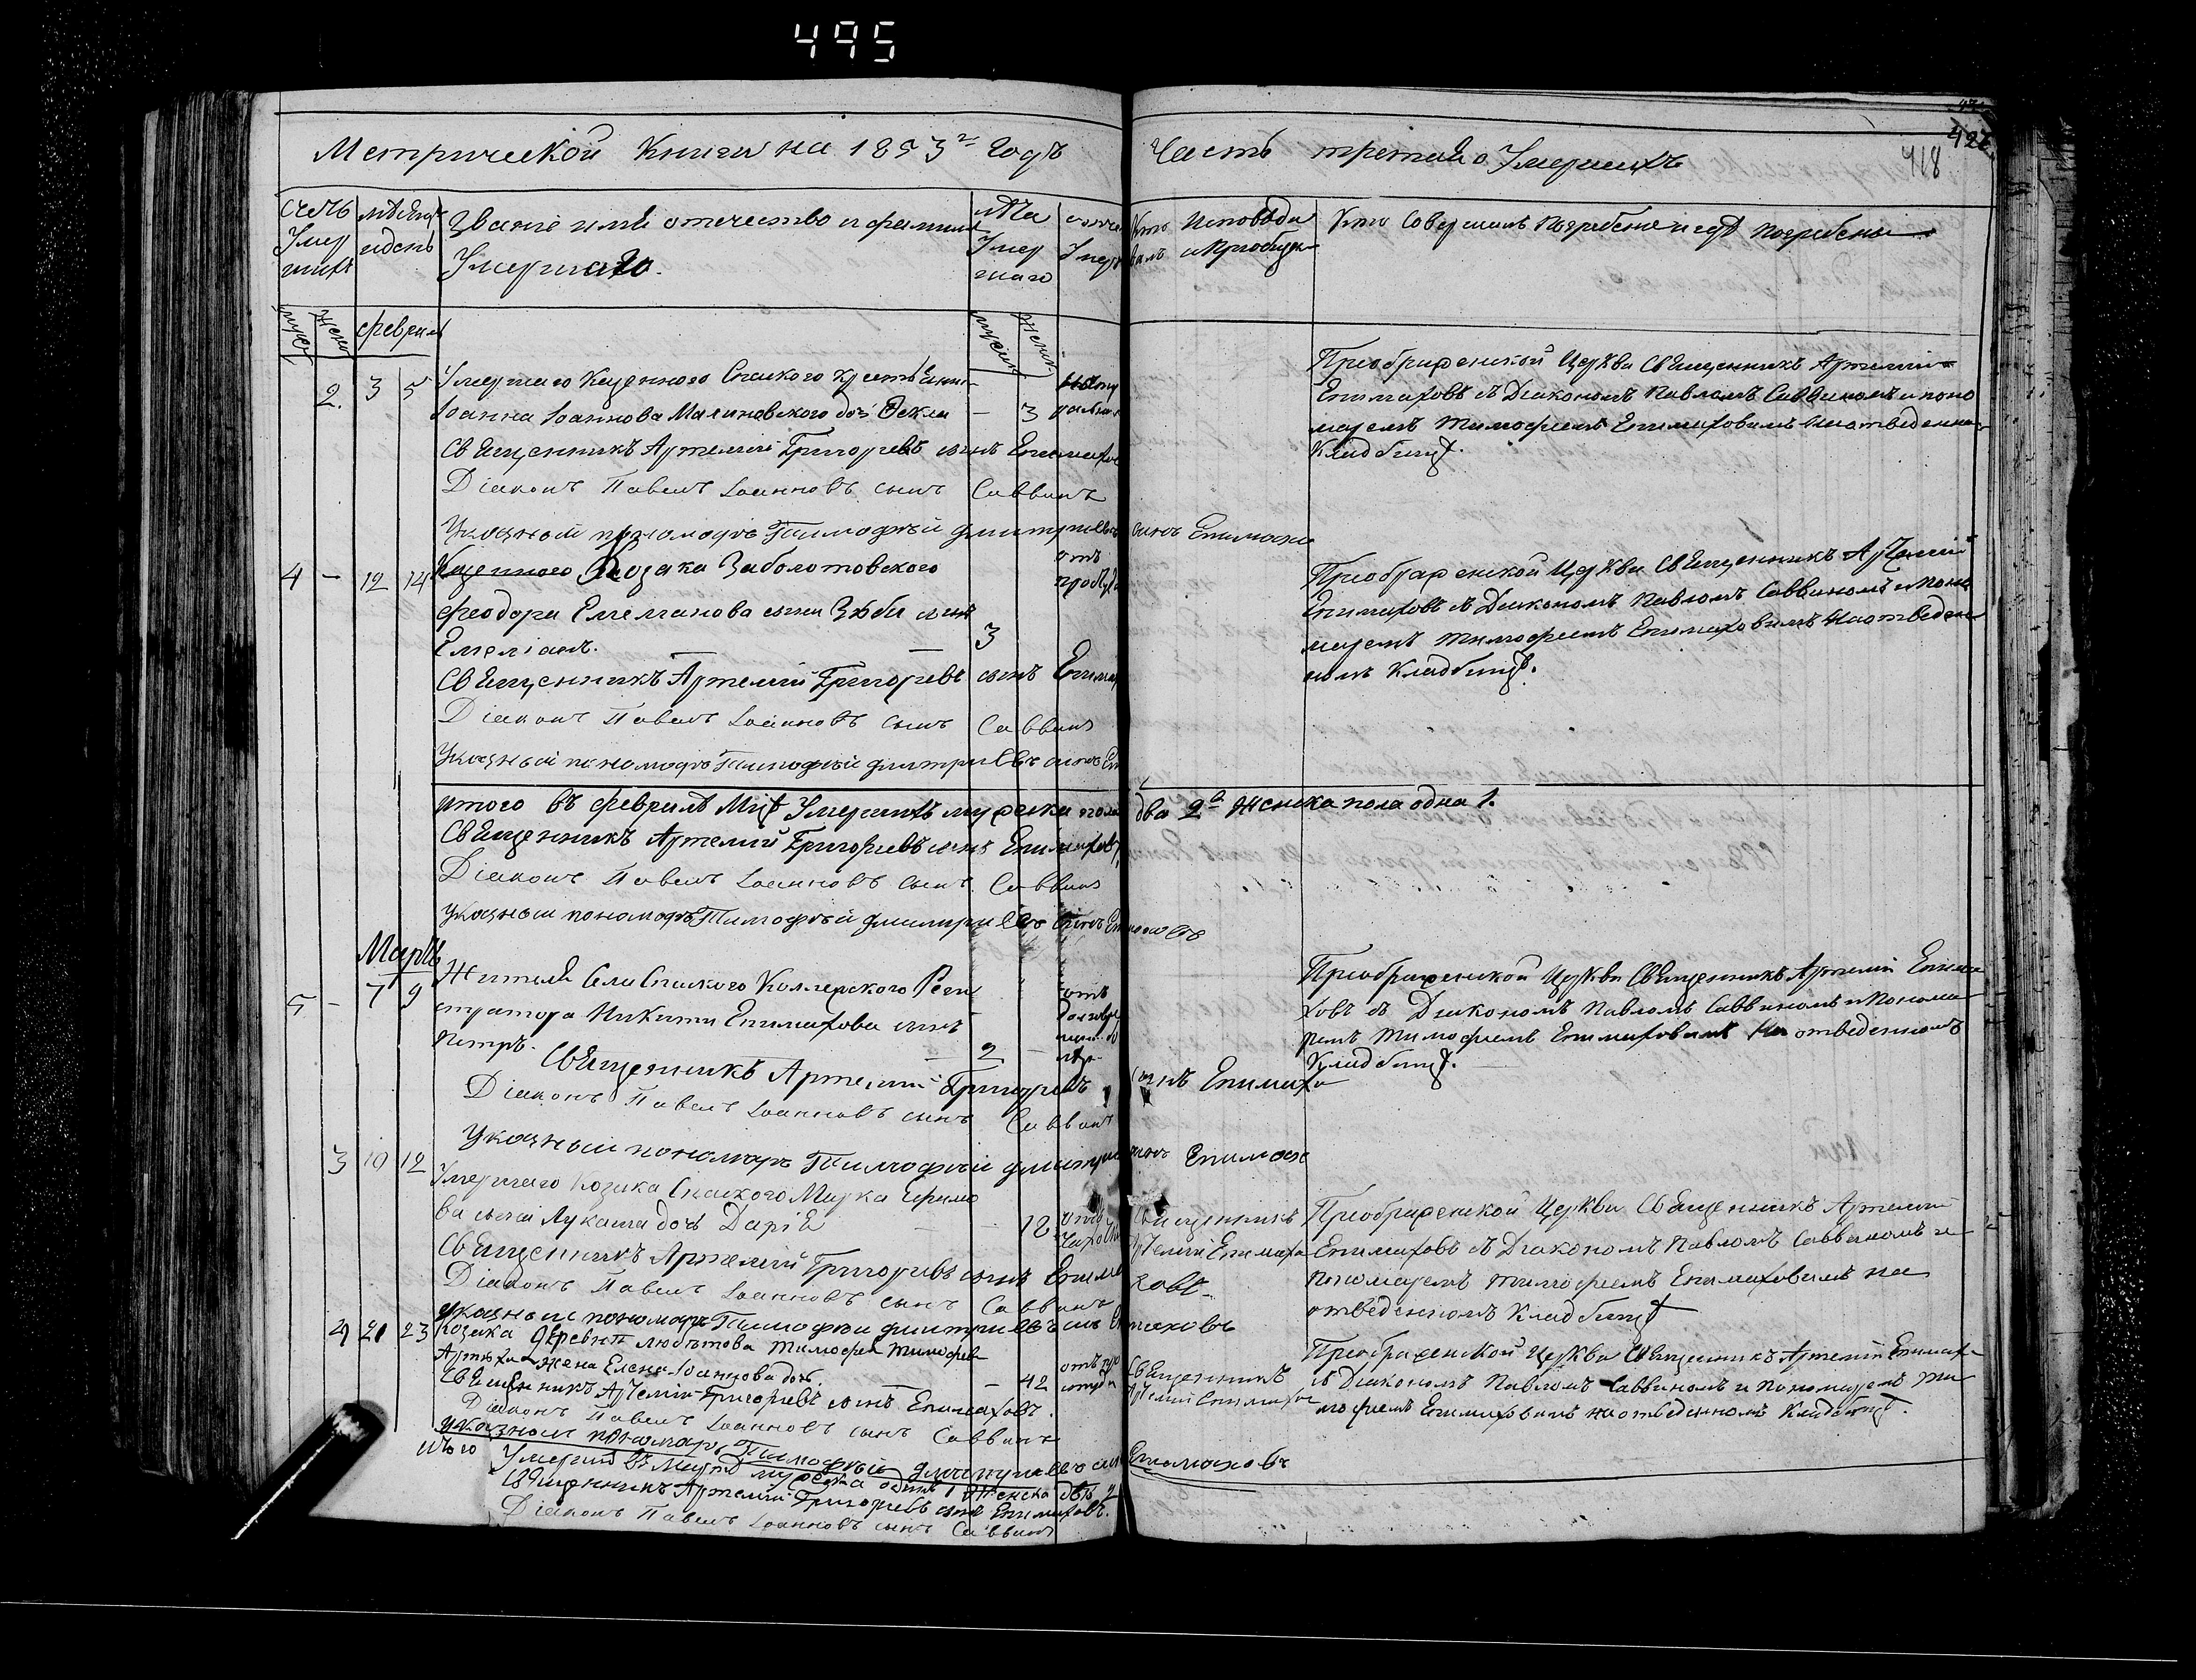 495
Метрической Книги на 1853 годъ
Часть третья о Умершихъ
418
Счетъ Умер шихъ
мѣсяцъ и день
Званіе имя отечество и фамилія
Умершаго.
лѣта Умер шаго
Кто Исповѣдо валъ и пріобща
Кто Совершалъ погребеніе и гдѣ погребены
муж
женс
февраль
2. 3 5
Умершаго Казенного Спаского крестьянина
Іоанна Іоаннова Малиновского дочь Ѳекла — 3
Священникъ Артемій Григорьевъ сынъ Епимахов
Діаконъ Павелъ Іоанновъ сынъ Саввинъ
Указный пономарь Тимофѣй Дмитріевъ сынъ Епимахо
Преображенской Церкви Священникъ Артемій
Епимаховъ съ Діакономъ Павломъ Саввиномъ и поно
маремъ Тимофеемъ Епимаховымъ на отведенно
Кладбищѣ.
4 — 12 14
Козака Заболотовского
Феодора Емельянова сына Зюби сынъ
Емеліанъ. — 3
отъ
Священникъ Артемій Григорьевъ сынъ Епимах
Діаконъ Павелъ Іоанновъ сынъ Саввинъ
Указный пономарь Тимофѣй Дмитріевъ сынъ Еп
Преображенской Церкви Священникъ Артемій
Епимаховъ съ Діакономъ Павломъ Саввиномъ и поно
маремъ Тимофеемъ Епимаховымъ на отведен
номъ Кладбищѣ.
итого въ февралѣ Мцѣ Умершихъ мужеска пола два 2а женска пола одна 1.
Священникъ Артемій Григорьевъ сынъ Епимаховъ
Діаконъ Павелъ Іоанновъ сынъ Саввинъ
Указный пономарь Тимофѣй Дмитріевъ сынъ Епимаховъ
Мартъ
5 — 7 9
Жителя Села Спаского Коллежского Реги
стратора Никиты Епимахова сынъ
Петръ. — 2 —
отъ
Священникъ Артемій Григорьевъ сынъ Епимахо
Діаконъ Павелъ Іоанновъ сынъ Саввинъ
Указный пономарь Тимофѣй Дмитріе сынъ Епимахо
Преображенской Церкви Священникъ Артемій Епима
ховъ съ Діакономъ Павломъ Саввиномъ и Понома
ремъ Тимофеемъ Епимаховымъ На отведенномъ
Кладбищѣ.
3 10 12
Умершаго Козака Спаского Марка Ефимо
ва сына Лукаша дочь Дарія — 12
отъ Чахо
Священникъ Артемій Епимахо
Священникъ Артемій Григорьевъ сынъ Епима ховъ
Діаконъ Павелъ Іоанновъ сынъ Саввинъ
Указный пономарь Тимофей Дмитріевъ сынъ Епимаховъ
Преображенской Церкви Священникъ Артемій
Епимаховъ съ Діакономъ Павломъ Саввиномъ и
пономаремъ Тимофеемъ Епимаховымъ на
отведенномъ Кладбищѣ
4 21 23
Козака деревни Любитова Тимофея Тимофеев
Артюха жена Елена Іоаннова дочь. — 42
отъ
Священникъ Артемій Епимахо
Священникъ Артемій Григорьевъ сынъ Епимаховъ.
Діаконъ Павелъ Іоанновъ сынъ Саввинъ
Указной пономарь Тимофѣй Дмитріевъ сын Епимаховъ
Преображенской Церкви Священникъ Артемій Епимах
съ Діакономъ Павломъ Саввиномъ и Пономаремъ Ти
мофеемъ Епимаховымъ на отведенномъ Кладбищѣ.
итого Умерш въ Мартѣ мужеска одинъ 1 Женска двѣ 2
Священникъ Артемій Григорьевъ сынъ Епимаховъ.
Діаконъ Павелъ Іоанновъ сынъ Саввинъ